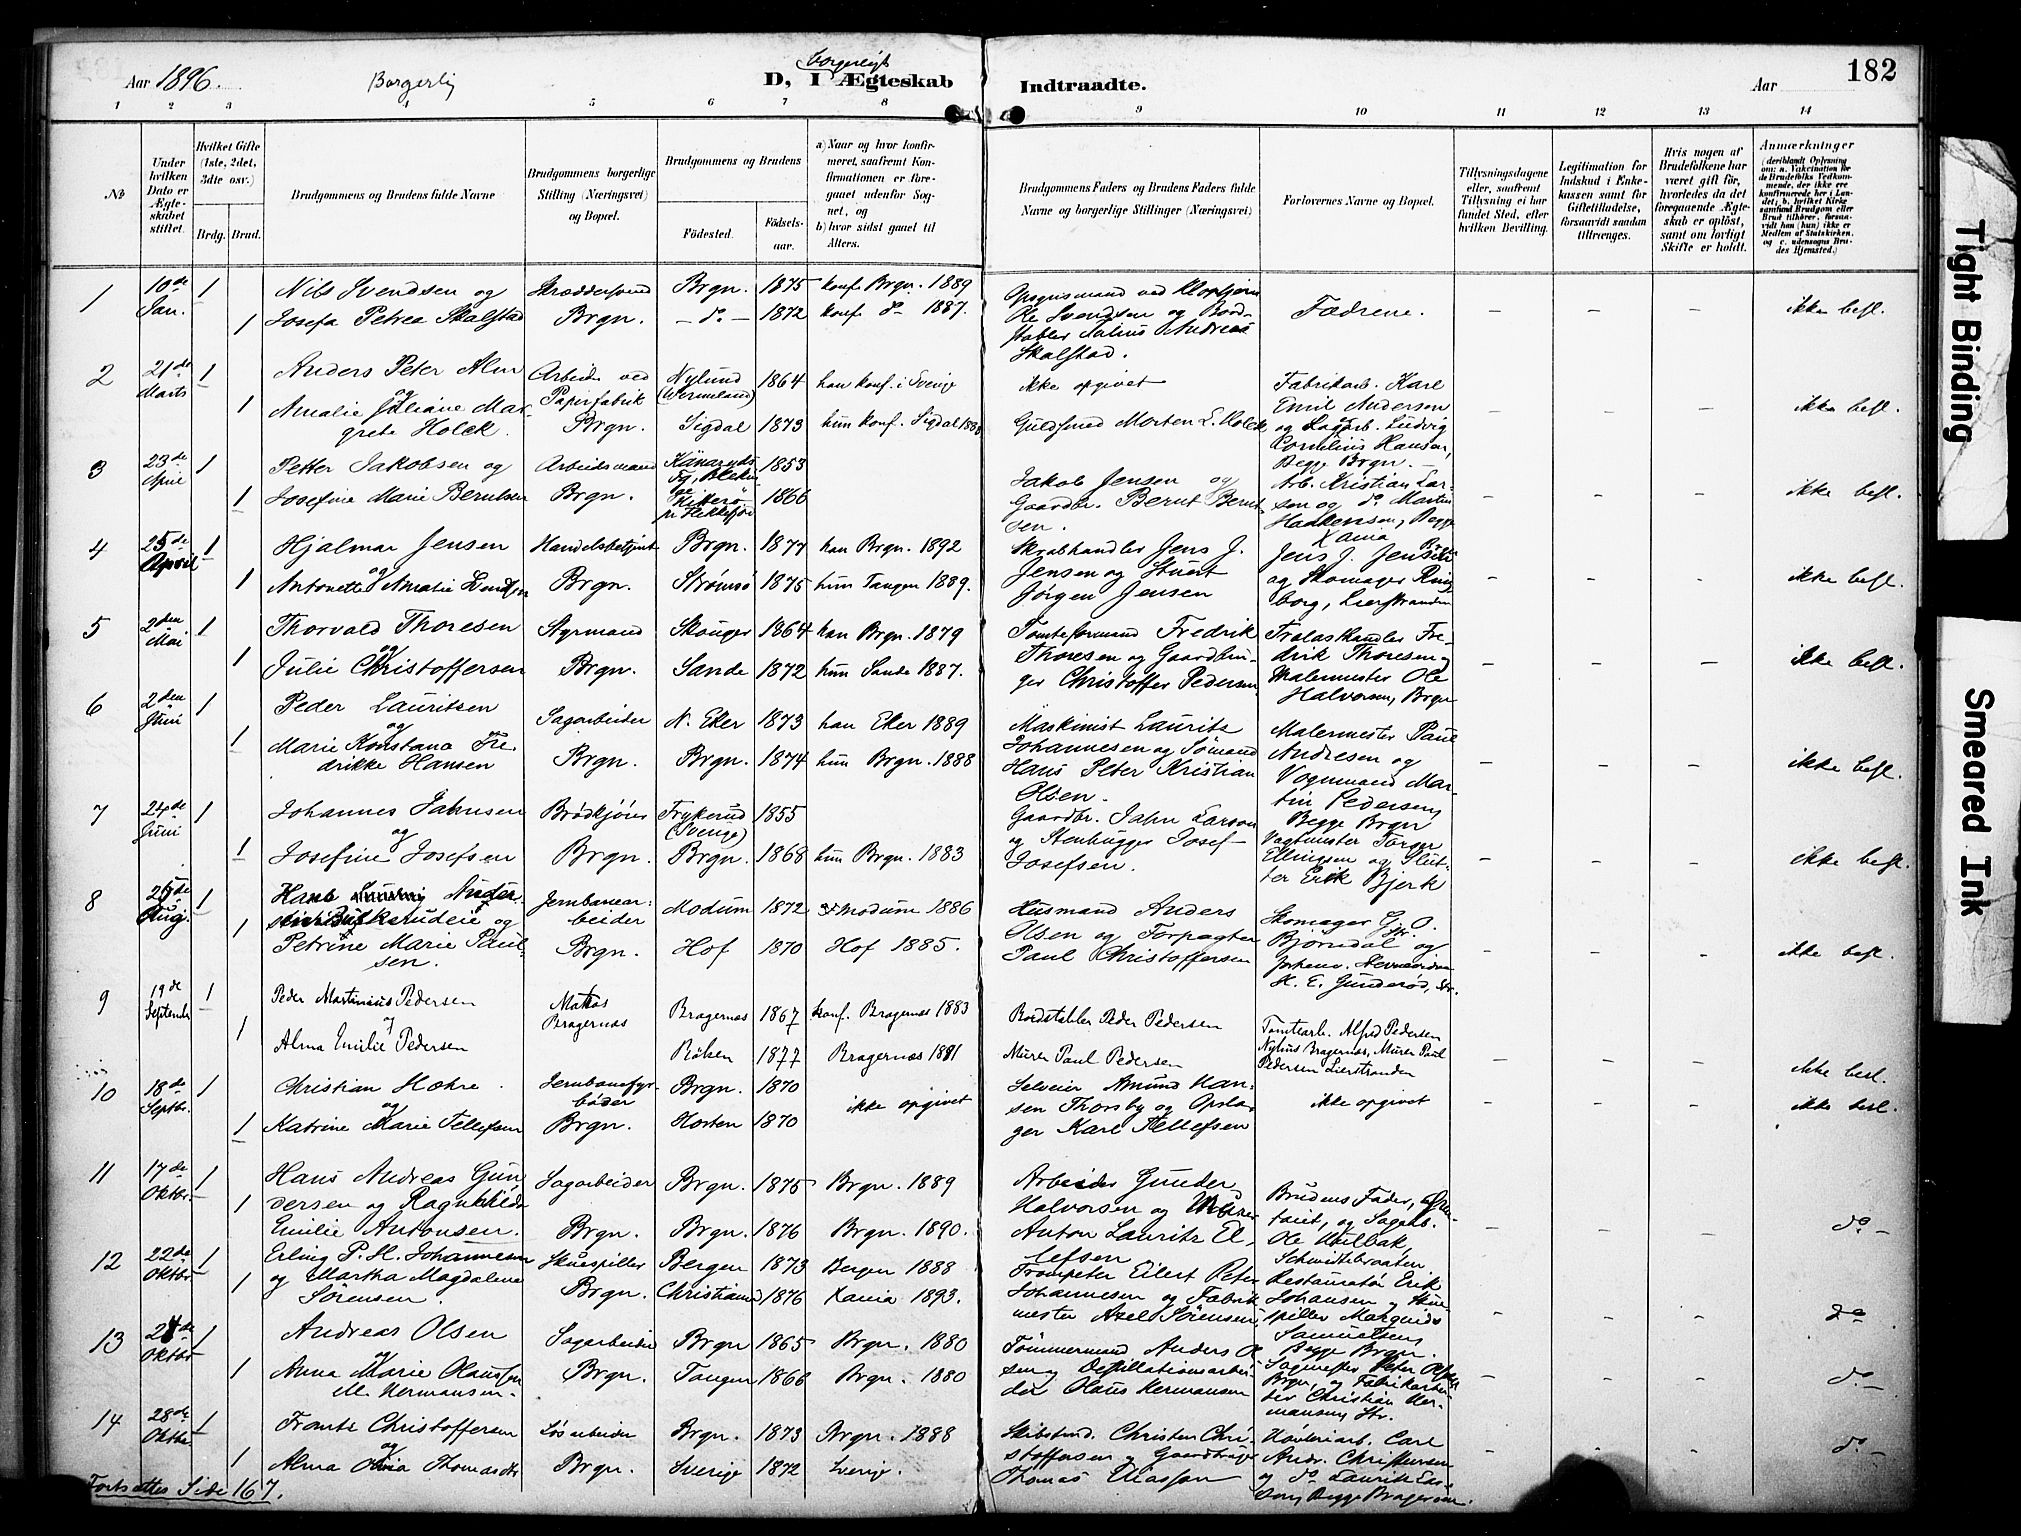 Aar 1896. Borgerlig D, I borgerligt Ægteskab Indtraadte. Aar 182
1 2 3 4 5 6 7 8 9 10 11 12 13 14
No
Under hvilken Dato er Ægteskabet stiftet.
Hvilket Gifte (1ste, 2det, 3dte osv.)
Brdg. Brud.
Brudgommens og Brudens fulde Navne
Brudgommens borgerlige Stilling (Næringsvei) og Bopæl.
Brudgommens og Brudens
Fødested. Fødselsaar.
a) Naar og hvor konfirmeret, saafremt Konfirmationen er foregaaet udenfor Sognet, og
b) hvor sidst gaaet til Alters.
Brudgommens Faders og Brudens Faders fulde Navne og borgerlige Stillinger (Næringsvei)
Forlovernes Navne og Bopæl.
Tillysningsdagene eller, saafremt Tillysning ei har fundet Sted, efter hvilken Bevilling.
Legitimation for Indskud i Enkekassen samt for Giftetilladelse, forsaavidt saadan tiltrænges.
Hvis nogen af Brudefolkene har været gift før, hvorledes da det foregaaende Ægteskab er opløst, samt om lovligt Skifte er holdt.
Anmærkninger
1 10de Jan. 1 Nils Svendsen og Skræddersvend Brgn. 1875 konf. Brgn. 1889
1 Josefa Petrea Skalstad Brgn. - do - 1872 konf. do 1887.
Ole Svendsen og Bordstabler Julius Andreas Skalstad.
Fædrene. - - - ikke besl.
2 21de Marts 1 Anders Peter Alm og Arbeider ved Papirfabrik Nylund (Vermeland) 1864 han konf. i Sverige
1 Amalie Juliane Margrete Holck. Brgn. Sigdal 1873 hun konf. Sigdal
ikke opgivet
Guldsmed Morten L. Holck
Fabrikarb. Karl Emil Andersen og Ludvig Cornelius Hansen, Begge Brgn. - - - ikke besl.
3 23de April 1 Petter Jakobsen og Arbeidsmand 1853
1 Josefine Marie Berntsen Brgn. 1866
Jakob Jensen og Gaardbr. Bernt Berntsen.
Arb. Kristian Larsen og do Martin Haakensen, Begge Xania - - - ikke besl.
4 25de April 1 Hjalmar Jensen og Handelsbetjent Brgn. 1877 han Brgn. 1892
1 Antonette Amalie Brgn. Strømsø 1875 hun Tangen 1889.
Skrabhandler Jens J. Jensen og Stuert Jørgen Jensen
Jens J. Jensen og Skomager Lierstranden - - - ikke besl.
5 2den Mai 1 Thorvald Thoresen og Styrmand Skouger 1864 han Brgn. 1879
1 Julie Christoffersen Brgn. Sande 1872 hun Sande 1887.
Tomteformand Fredrik Thoresen og Gaardbruger Christoffer Pedersen
Fredrik Thoresen og Malermester Ole Halvorsen, Brgn - - - ikke besl.
6 2den Juni 1 Peder Lauritsen og Sagarbeider N. Eker 1873 han Eker 1889
1 Marie Konstana Fredrikke Hansen Brgn. Brgn. 1874 hun Brgn. 1888
Maskinist Lauritz Johannesen og Sømand Hans Peter Kristian Olsen.
Malermester Paul Andresen og Vognmand Martin Pedersen, Begge Brgn - - - ikke besl.
7 24de Juni 1 Johannes Jahnsen og Brødkjører Frykerud (Sverige) 1855
1 Josefine Josefsen Brgn. Brgn. 1868 hun Brgn. 1883
Gaardbr. Jahn Larson og Stenhugger Josef Josefsen.
Vagtmester Torger Ellingsen og Erik Bjerk - - - ikke besl.
8 Aug. 1 Hans og Jernbanearbeider Modum 1872 Modum 1886
1 Petrine Marie Paulsen. Brgn. Hof 1870 Hof 1885.
Husmand Anders Olsen og Forpagter Paul Christoffersen
Skomager G. O. Bjørndal og H. E. Gunderød, Str. - - - ikke besl.
9 19de September 1 Peder Martinius Pedersen og Matros Bragernæs Bragernæs 1867 konf. Bragernæs 1883
1 Alma Emilie Pedersen Røken 1877 Bragernæs 1891
Bordstabler Peder Pedersen
Murer Paul Pedersen
Tomtearb. Alfred Pedersen Nyhus Bragernæs, Murer Paul Pedersen Lierstranden - - - ikke besl.
10 18de Septbr. 1 Christian Hæhre og Jernbanefyrbøder Brgn. 1870 ikke opgivet
1 Katrine Marie Tellefsen Brgn. Horten 1870
Selveier Amund Hansen Thorsby og Opslager Karl Tellefsen
ikke opgivet - - - ikke besl.
11 17de Oktbr. 1 Hans Andreas Gundersen og Ragnhild Sagarbeider Brgn. 1875 Brgn. 1889
1 Emilie Antonsen. Brgn. Brgn. 1876 Brgn. 1890.
Arbeider Gunder Halvorsen og Murer Anton Lauritz Ellefsen
Brudens Fader, og Sagarb. Ole - - - do -
12 22de Oktbr 1 Erling P. H. Johannesen Skuespiller Bergen 1873 Bergen 1888
1 og Martha Magdalene Sørensen. Brgn. Christiania 1876 Xania 1893.
Trompeter Eilert Peter Johannesen og Fabrikmester Axel Sørensen,
Restauratør Erik Johansen og Skuespiller Begge Brgn. - - - do
13 Oktbr 1 Andreas Olsen og Sagarbeider Brgn 1865 Brgn. 1880
1 Anna Marie M. Hermansen. Brgn. Tangen 1866 Brgn. 1880
Tømmermand Anders Olsen og Destillationsarbeider Olaus Hermansen
Sagmester Peter Brgn, og Fabrikarbeider Christian Hermansen, Str. - - - do -
14 28de Oktbr. 1 Frants Christoffersen og Løsarbeider Brgn. 1873 Brgn. 1888
1 Alma Olivia Thomasdtr Brgn. Sverige 1872 Sverige.
Christen Christoffersen og Gaardbruger Thomas
Høvleriarb. Carl Andr. Christensen og do Laurits Begge Bragernæs. - - - do -
Fortsættes Side 167.
Tight Binding
Smeared Ink